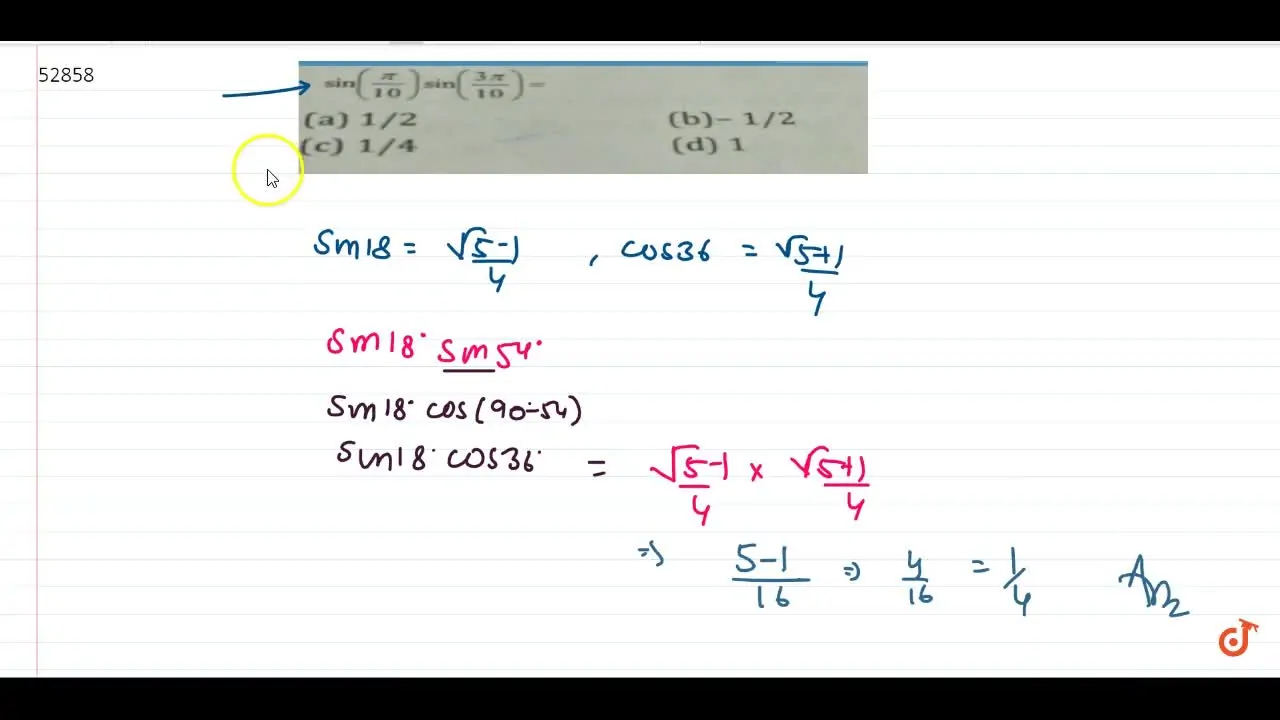 52858
sin(π/10)sin(3π/10)=
(a) 1/2 (b)- 1/2
(c) 1/4 (d) 1
Sin18 = √5-1/4 , cos36 = √5+1/4
Sin18° Sin54°
Sin18° cos(90-54)
Sin18° cos36° = √5-1/4 × √5+1/4
⇒ 5-1/16 ⇒ 4/16 = 1/4 Ans